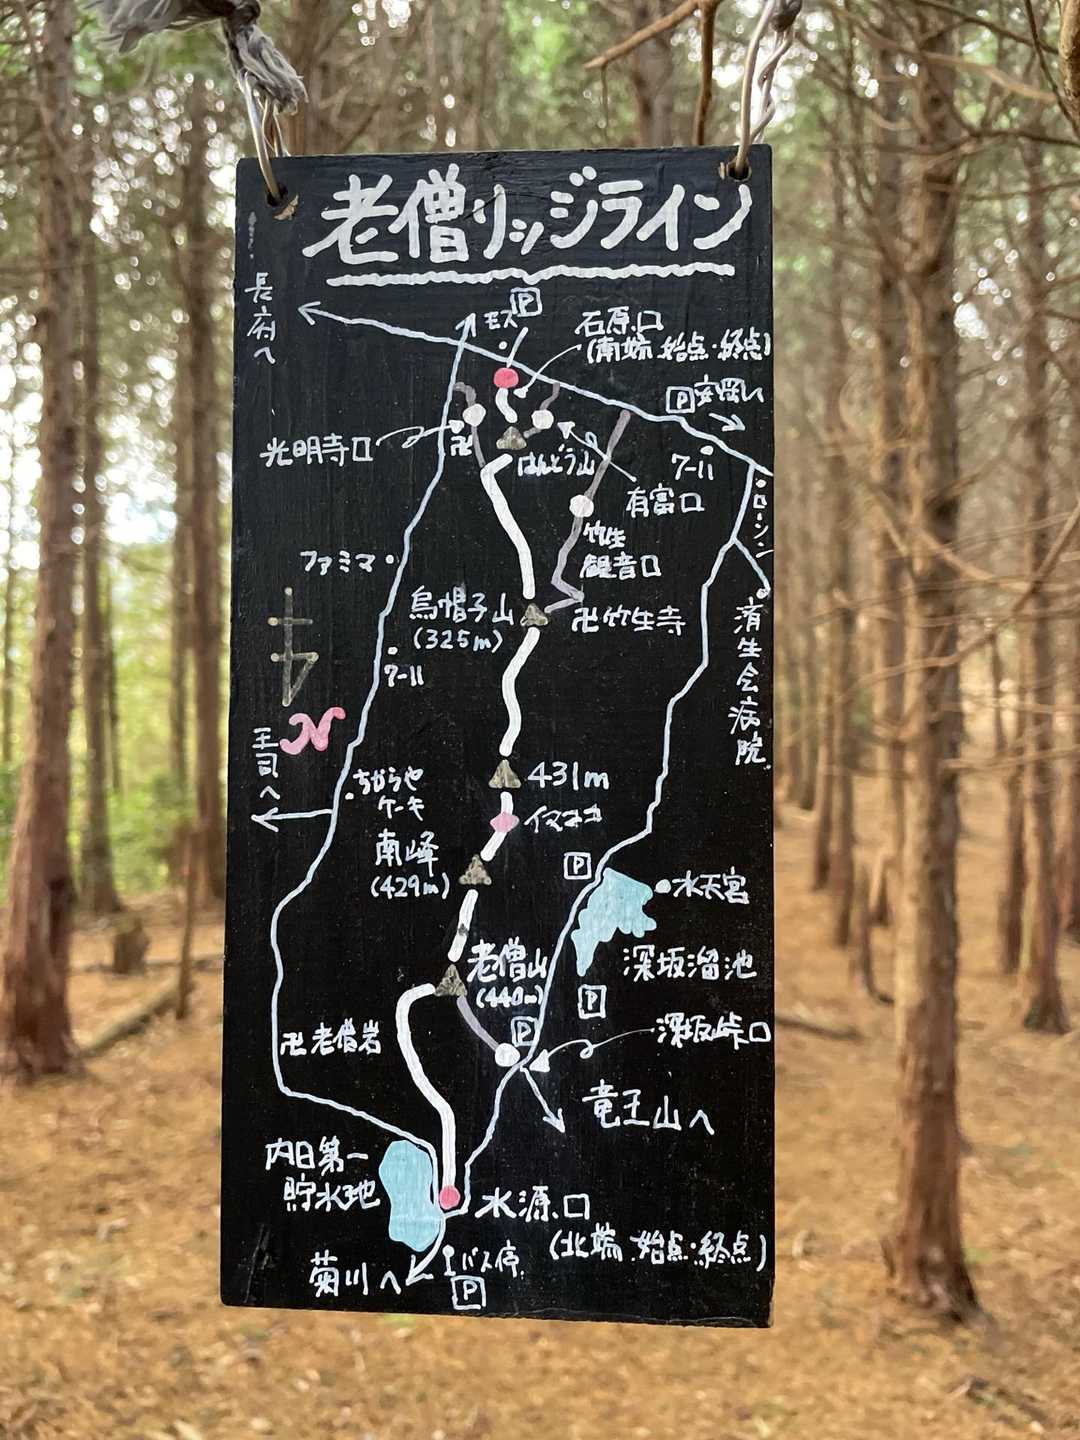 老僧リッジライン
P
長府へ
モス
石原口
(南端 始点・終点)
P 安岡へ
光明寺口
卍
はんどう山
7-11
有富口
ローソン
竹生
観音口
ファミマ
烏帽子山
(325m)
卍竹生寺
済生会病院
7-11
N
王司へ
431m
ちからや
ケーキ
イマココ
南峰
(429m)
P
水天宮
老僧山
(440m)
深坂溜池
P
P
卍老僧岩
深坂峠口
竜王山へ
内日第一
貯水池
水源口
(北端 始点・終点)
菊川へ
バス停
P